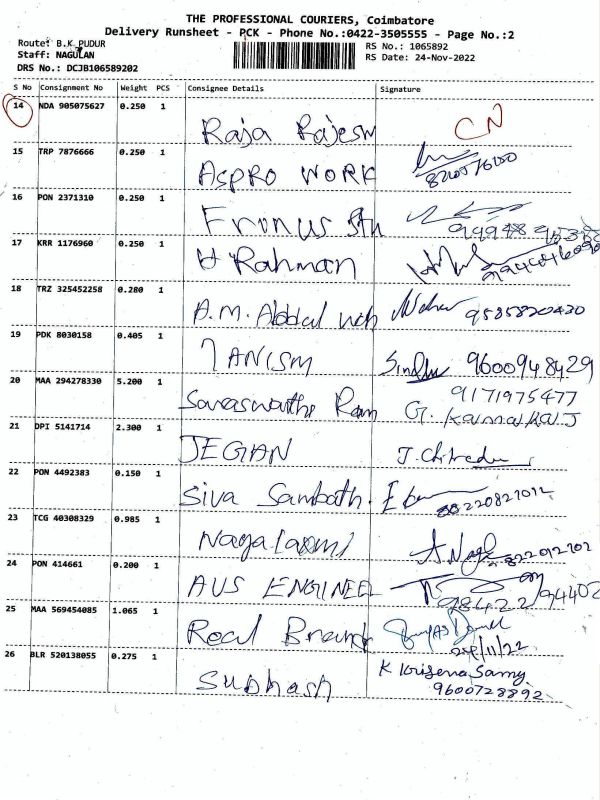 THE PROFESSIONAL COURIERS, Coimbatore
Delivery Runsheet - PCK - Phone No.:0422-3505555 - Page No.:2
Route: B.K PUDUR
RS No.: 1065892
Staff: NAGULAN
RS Date: 24-Nov-2022
DRS No.: DCJB106589202
S No Consignment No Weight PCS Consignee Details Signature
14 NDA 905075627 0.250 1
Raja Rajesw CN
15 TRP 7876666 0.250 1
ASPRO WORK
16 PON 2371310 0.250 1
Fronus
17 KRR 1176960 0.250 1
Rahman
18 TRZ 325452258 0.280 1
A.M. Abdal 9585820430
19 PDK 8030158 0.405 1
TANISM Sindhu 9600948429
20 MAA 294278330 5.200 1
9171975477
Saraswathi Ram G.
21 DPI 5141714 2.300 1
JEGAN J.
22 PON 4492383 0.150 1
Siva Sambath.
23 TCG 40308329 0.985 1
Nagalaxmi
24 PON 414661 0.200 1
AUS ENGINEE
25 MAA 569454085 1.065 1
Real Brand
24/11/22
26 BLR 520138055 0.275 1
K Krisena Samy
Subhash 9600728892